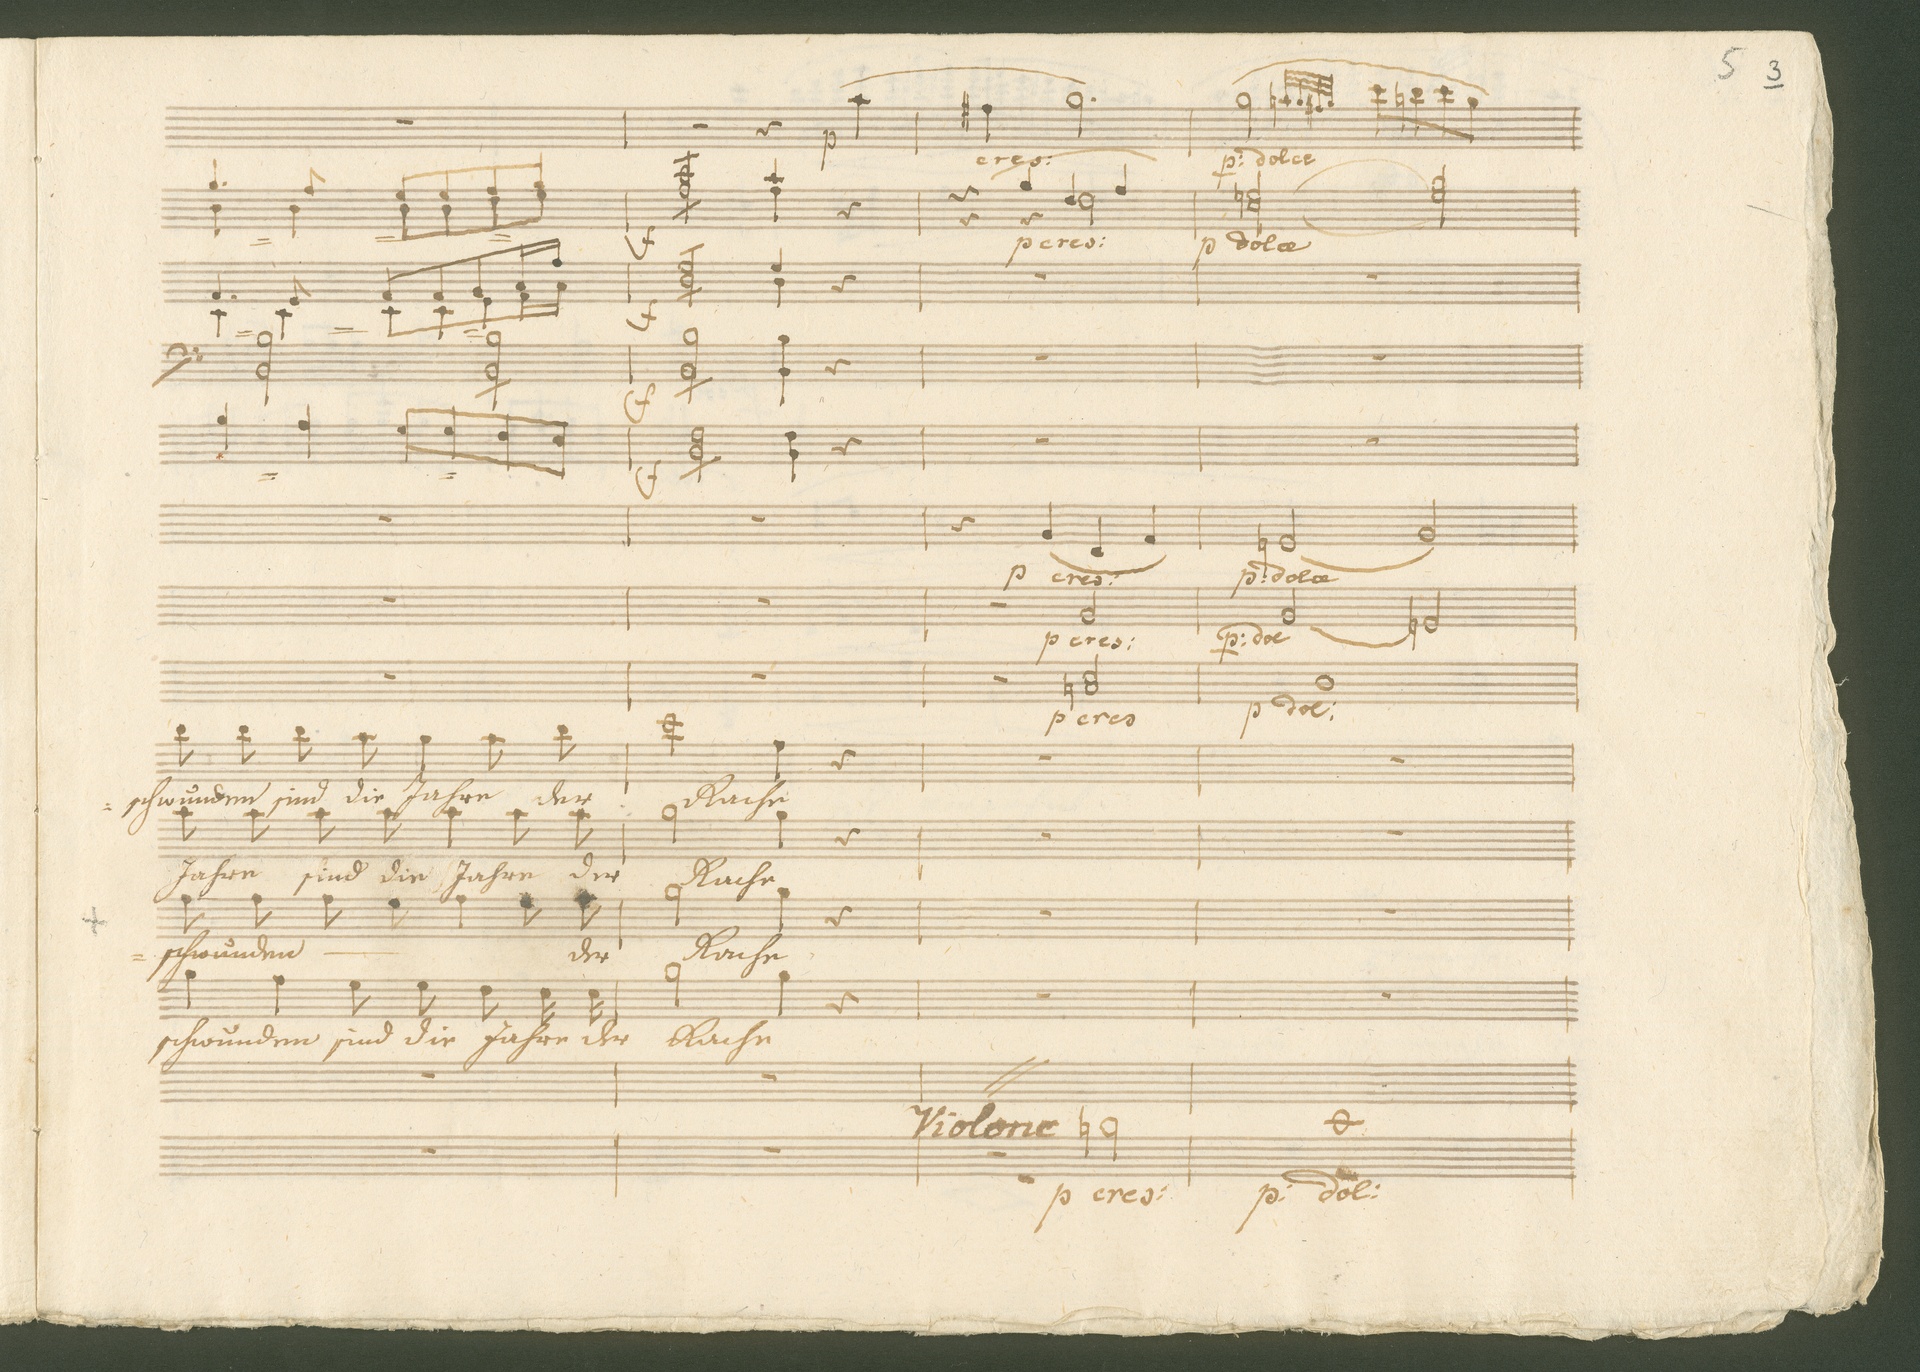 5 3
p
cres: p: dolce
f p cres: p dolce
f
f
f
p cres: p: dolce
p cres: p: dol
p cres p dol:
=schwunden sind die Jahre der Rache
Jahre sind die Jahre der Rache
=schwunden der Rache
schwunden sind die Jahre der Rache
Violone
p cres: p: dol: